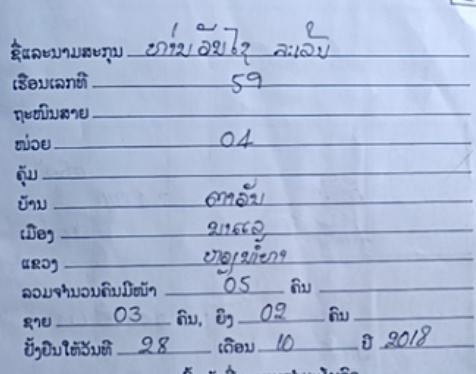 ຊື່ແລະນາມສະກຸນ ທ່ານ ວັນໄຊ
ເຮືອນເລກທີ 59
ຖະໜົນສາຍ
ໜ່ວຍ 04
ຄຸ້ມ
ບ້ານ ຕາລັນ
ເມືອງ ນາແລ
ແຂວງ ຫຼວງນໍ້າທາ
ລວມຈຳນວນຄົນມີໜ້າ 05 ຄົນ
ຊາຍ 03 ຄົນ, ຍິງ 02 ຄົນ
ປັ້ງປຶ້ມໃຫ້ວັນທີ 28 ເດືອນ 10 ປີ 2018